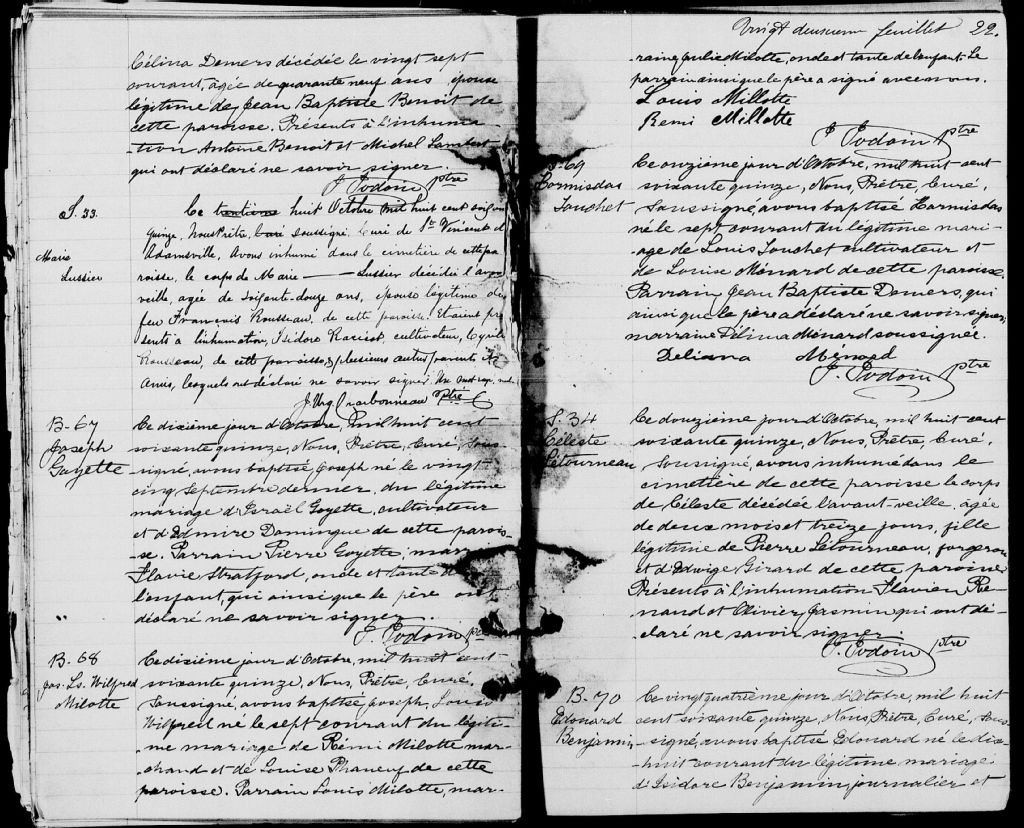 Célina Demers décédée le vingt sept
courant, agée de quarante neuf ans épouse
légitime de Jean Baptiste Benoit de
cette paroisse. Présents à l'inhuma-
tion Antoine Benoit et Michel Lambert
qui ont déclaré ne savoir signer.
J. Jodoin ptre
S. 33.
Marie
Lussier
Ce huit Octobre mil huit cent soixante
quinze, Nous Prêtre, curé soussigné, Curé de St Vincent d'
Adamsville, Avons inhumé dans le cimetière de cette pa
roisse, le corps de Marie Lussier décédée l'avant
veille, agée de soixante-douze ans, épouse légitime de
feu François Rousseau, de cette paroisse. Etaient pré
sents à l'inhumation, Isidore cultivateur, Cyrille
Rousseau, de cette paroisse, & plusieurs autres parents et
Amis, lesquels ont déclaré ne savoir signer. Un mot rayé nul.
Charbonneau Ptre
B. 67
Joseph
Goyette
Ce dixième jour d'Octobre, mil huit cent
soixante quinze, Nous, Prêtre, Curé, Sous-
signé, avons baptisé Joseph né le vingt-
cinq Septembre dernier, du légitime
mariage d'Israël Goyette, cultivateur
et d'Edmire Domingue de cette parois-
se. Parrain Pierre Goyette, marraine
Flavie Stratford, oncle et tante de
l'enfant, qui ainsi que le père ont
déclaré ne savoir signer.
J. Jodoin ptre
B. 68
Jos. Ls. Wilfred
Milotte
Ce dixième jour d'Octobre, mil huit cent-
soixante quinze, Nous, Prêtre, Curé,
Soussigné, avons baptisé Joseph, Louis
Wilfred né le sept courant du légiti-
me mariage de Rémi Milotte mar-
chand et de Louise Phaneuf de cette
paroisse. Parrain Louis Milotte, mar-
Vingt deuxieme feuillet 22.
raine Julie Milotte, oncle et tante de l'enfant. Le
parrain ainsi que le père a signé avec nous.
Louis Millotte
Remi Millotte
J. Jodoin ptre
B. 69
Hormisdas
Touchet
Ce onzième jour d'Octobre, mil huit cent
soixante quinze, Nous, Prêtre, Curé,
Soussigné, avons baptisé Hormisdas
né le sept courant du légitime mari-
age de Louis Touchet cultivateur et
de Louise Ménard de cette paroisse.
Parrain Jean Baptiste Demers, qui
ainsi que le père a déclaré ne savoir signer,
marraine Délina Ménard soussignée.
Deliana Menard
J. Jodoin ptre
S. 34
Céleste
Létourneau
Ce douzième jour d'Octobre, mil huit cent
soixante quinze, Nous, Prêtre, Curé,
Soussigné, avons inhumé dans le
cimetière de cette paroisse le corps
de Céleste décédée l'avant-veille, agée
de deux mois et treize jours, fille
légitime de Pierre Létourneau, forgeron
et d'Edwige Girard de cette paroisse.
Présents à l'inhumation Flavien Re-
naud et Olivier Jasmin qui ont dé-
claré ne savoir signer.
J. Jodoin ptre
B. 70
Edouard
Benjamin
Ce vingt quatrième jour d'Octobre, mil huit
cent soixante quinze, Nous, Prêtre, Curé, Sous-
signé, avons baptisé Edouard né le dix-
huit courant du légitime mariage
d'Isidore Benjamin, journalier et